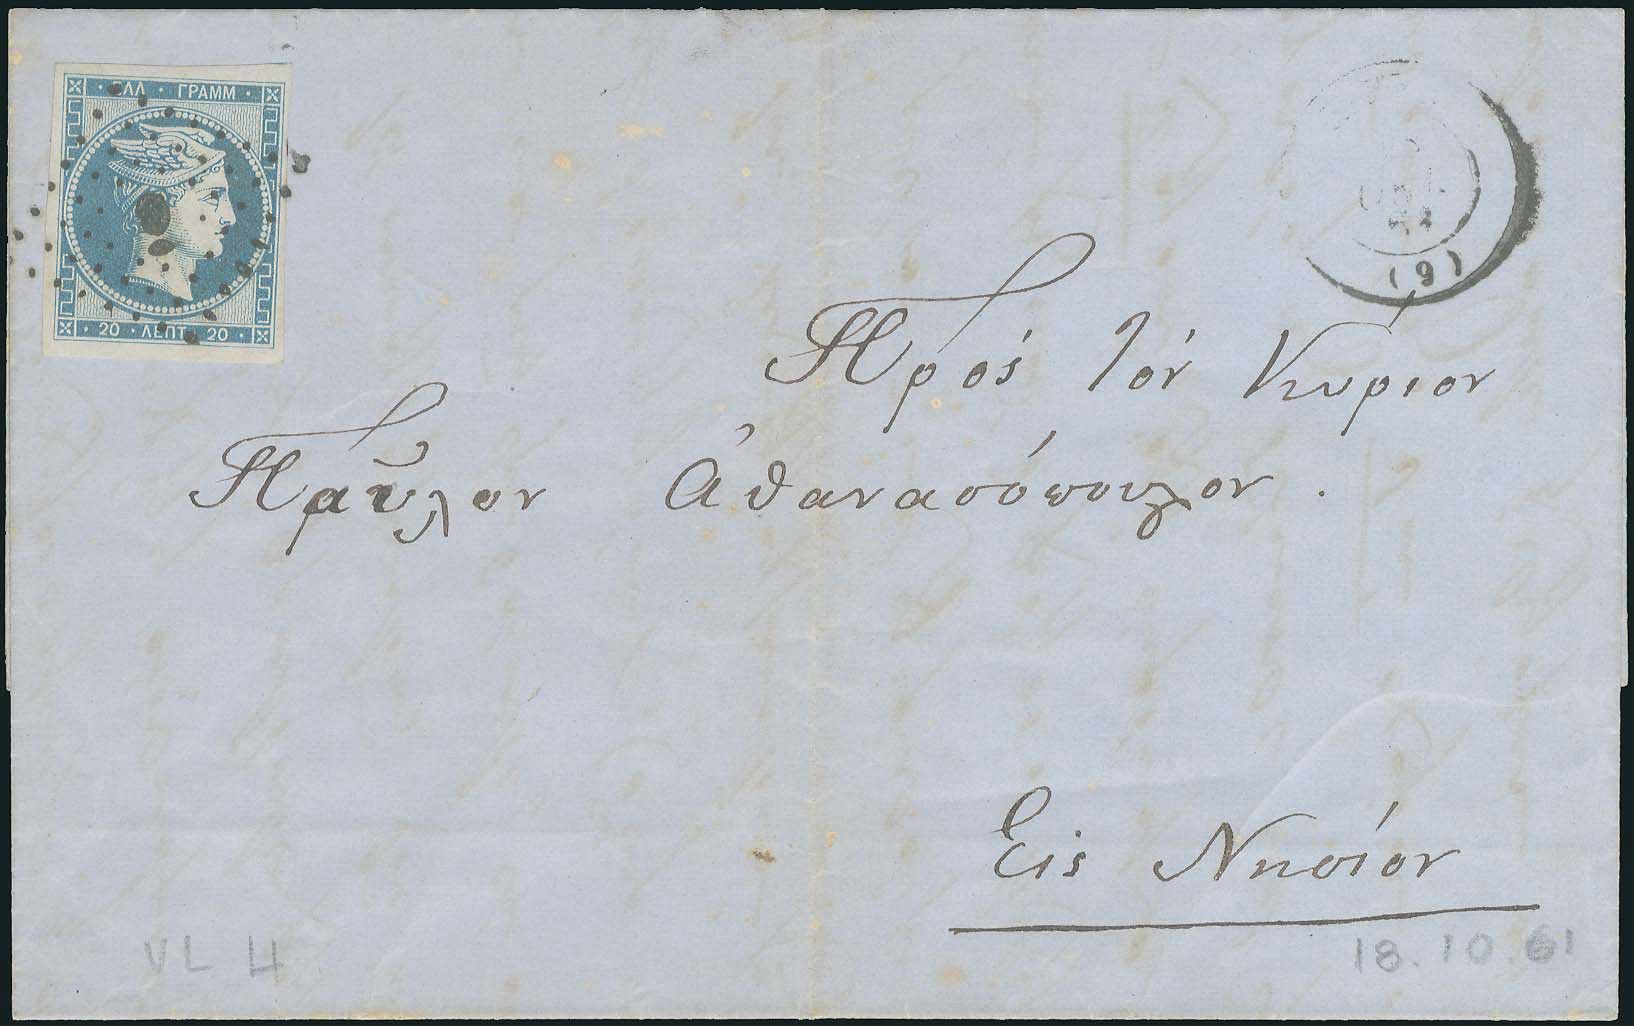 · ΕΛΛ · ΓΡΑΜΜ ·
· 20 · ΛΕΠΤ · 20 ·
(9)
Πρὸς Τὸν Κύριον
Παῦλον Ἀθανασόπουλον .
Εἰς Νησίον
VL 4
18.10.61